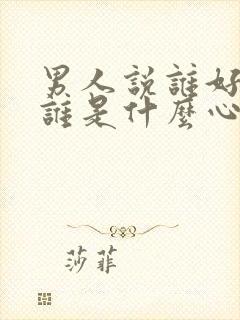 男人說誰好
誰是什麼心
莎菲